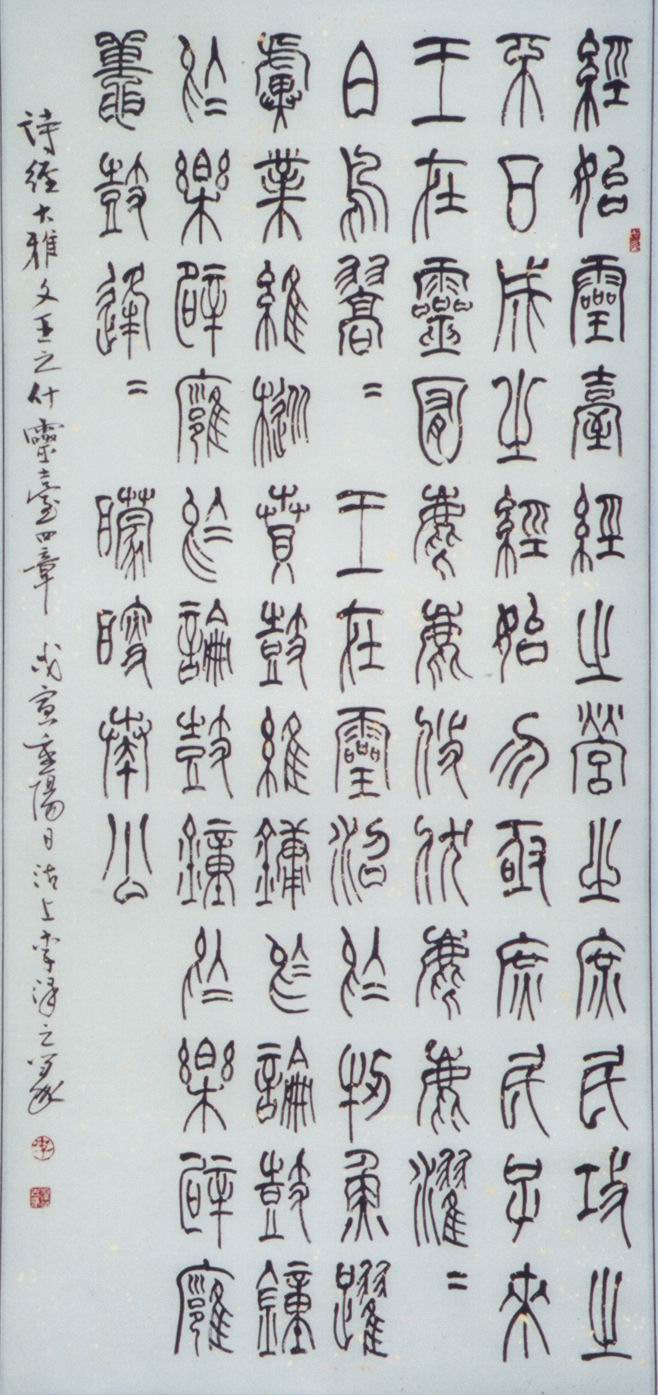 經始靈臺經之營之庶民攻之
不日成之經始勿亟庶民子來
王在靈囿麀鹿攸伏麀鹿濯〻
白鳥翯〻王在靈沼於牣魚躍
虡業維樅賁鼓維鏞於論鼓鐘
於樂辟廱於論鼓鐘於樂辟廱
鼉鼓逢〻矇瞍奏公
詩經大雅文王之什靈臺四章 戊寅重陽日沽上李澤之篆